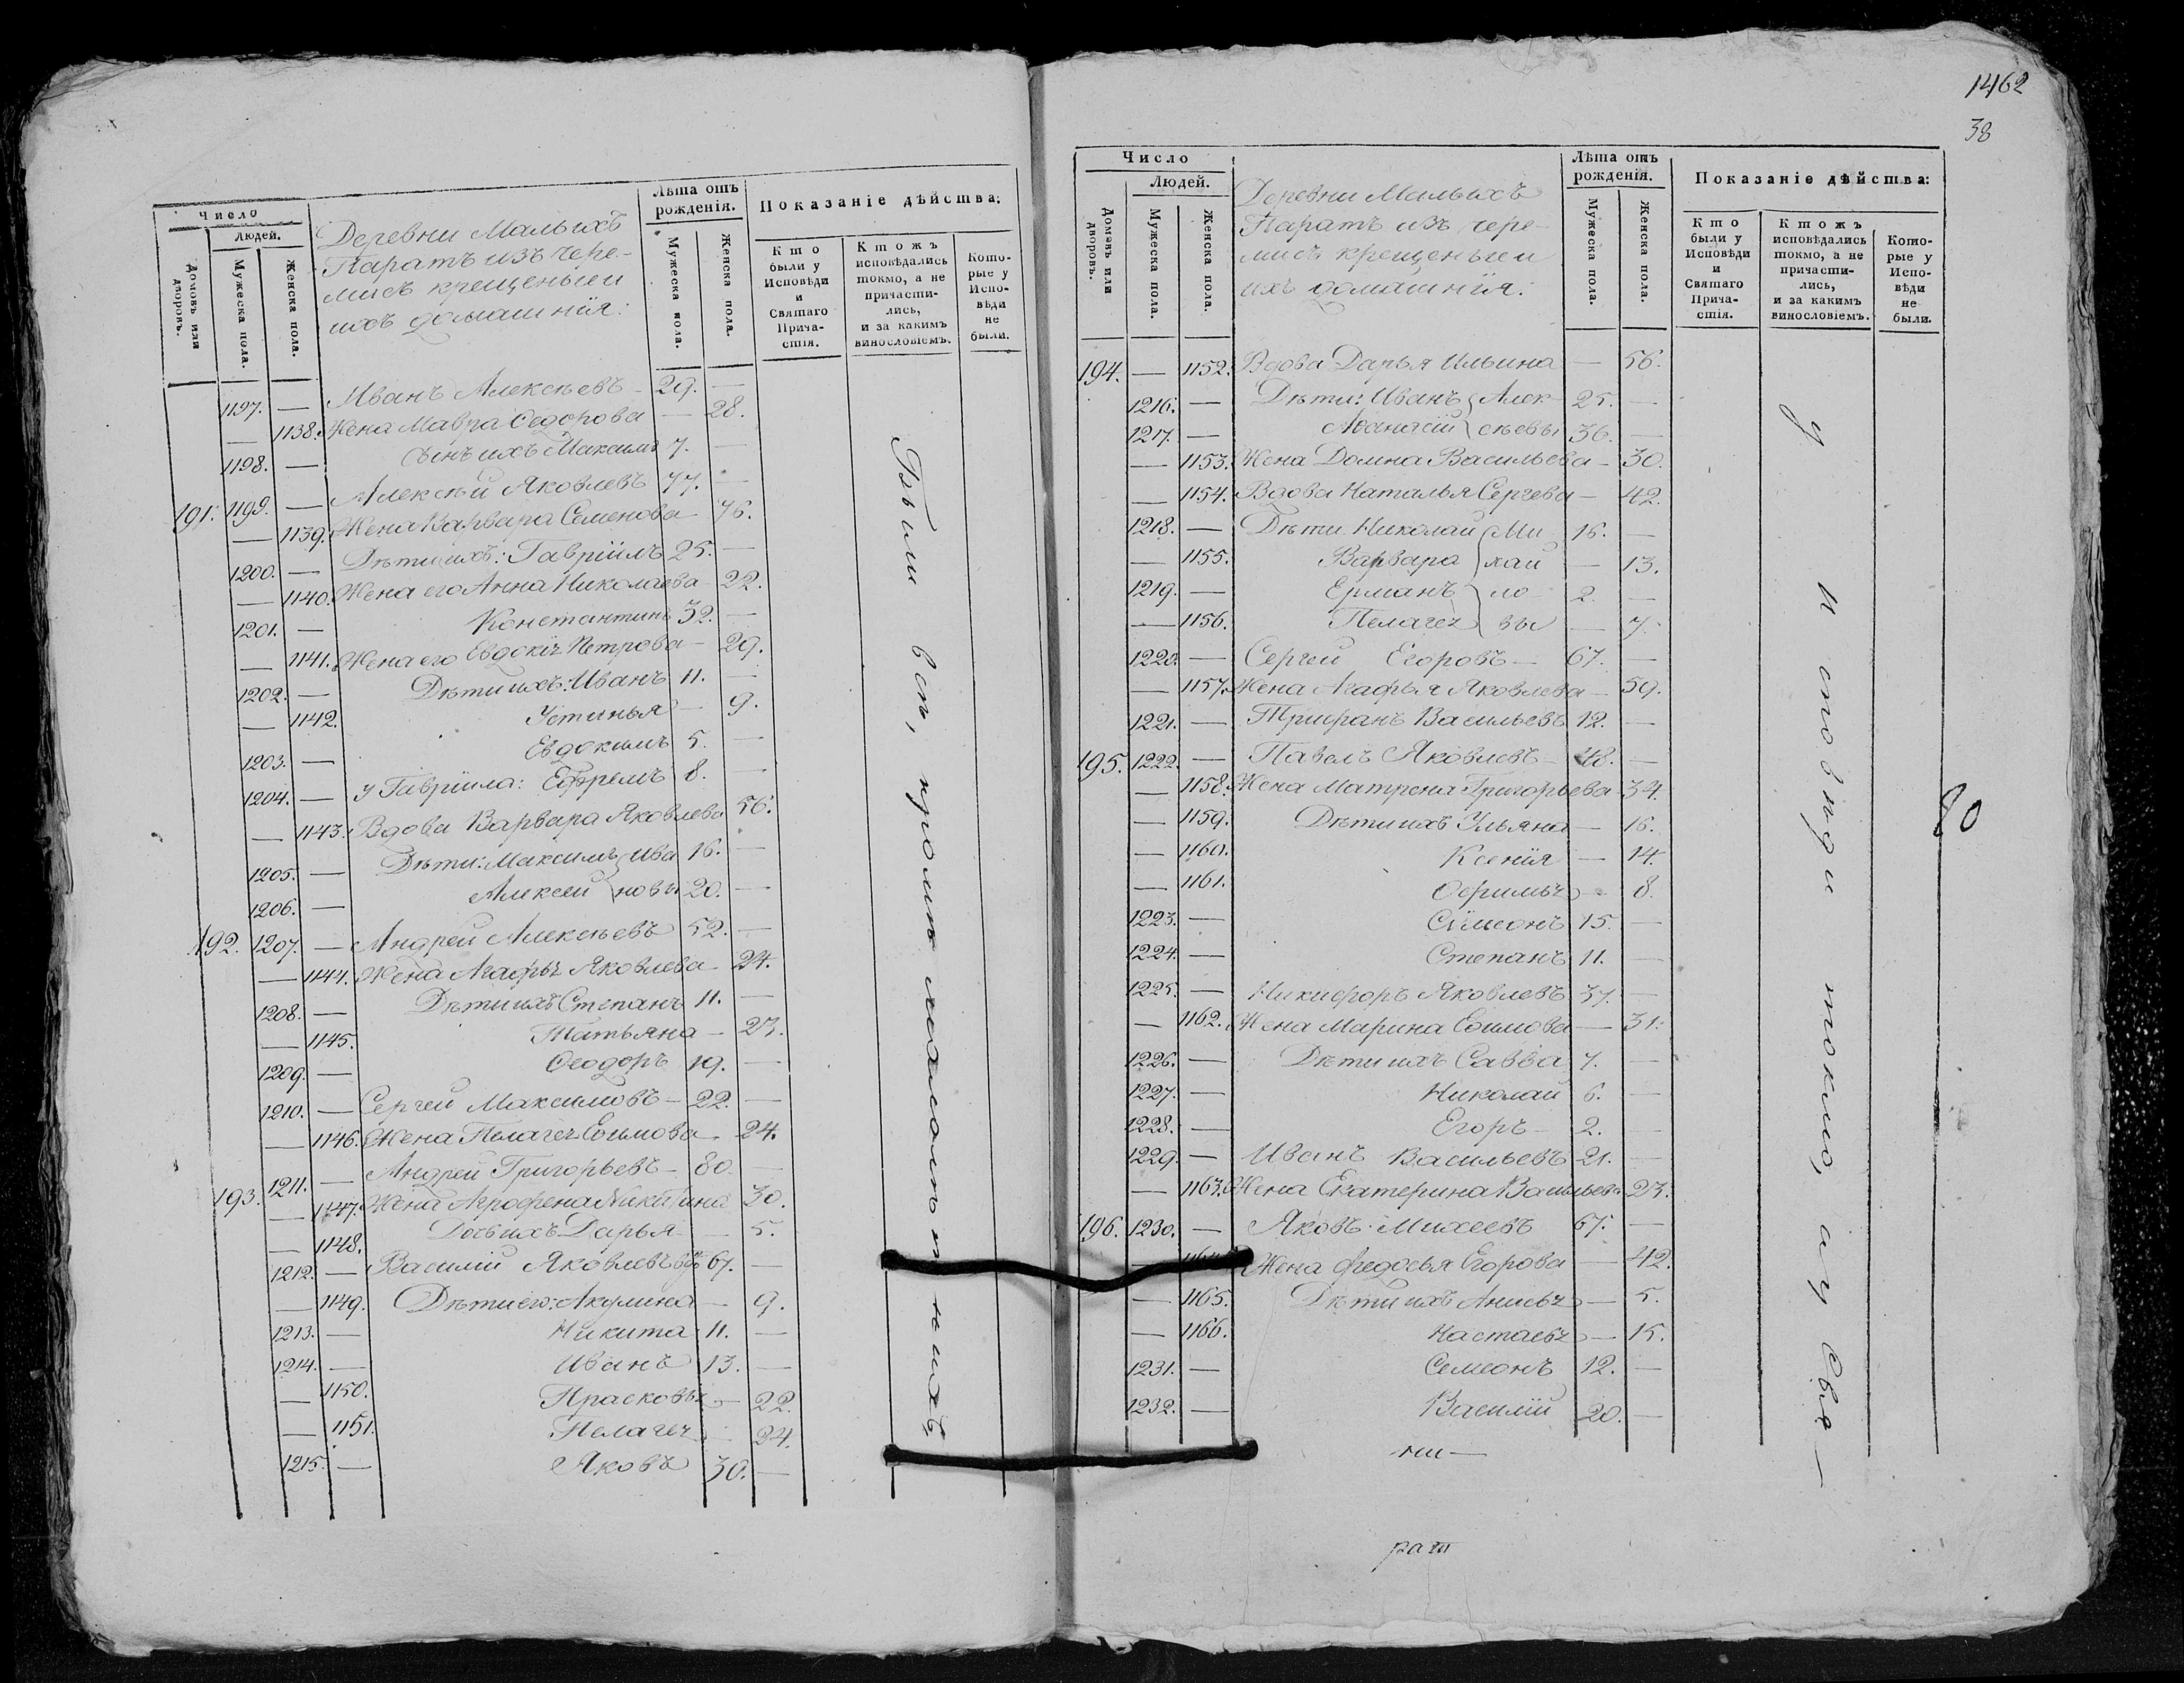 Число
Людей.
Домовъ или дворовъ.
Мужеска пола.
Женска пола.
Деревни Малыхъ
Паратъ изъ чере-
мисъ крещеныи и
ихъ домашнія:
Лѣта отъ рожденія.
Мужеска пола.
Женска пола.
Показаніе дѣйства:
Кто были у Исповѣди и Святаго Прича-стія.
Ктожъ исповѣдались токмо, а не причасти-лись, и за какимъ винословіемъ.
Кото-рые у Испо-вѣди не были.
1197. — Иванъ Алексѣевъ — 29. —
— 1138. Жена Мавра Ѳедорова — 28.
1198. — Сынъ ихъ Максимъ 7. —
191. 1199. — Алексѣй Яковлевъ 77. —
— 1139. Жена Варвара Семенова 76.
1200. — Дѣти ихъ: Гавріилъ 25. —
— 1140. Жена его Анна Николаева — 22.
1201. — Константинъ 32. —
— 1141. Жена его Евдокія Петрова — 29.
1202. — Дѣти ихъ: Иванъ 11. —
— 1142. Устинья — 9.
1203. — Евдокимъ 5. —
1204. — у Гавріила: Ефремъ 8. —
— 1143. Вдова Варвара Яковлева 56.
1205. — Дѣти: Максимъ Ива 16. —
1206. — Алексѣй новы 20. —
192. 1207. — Андрей Алексѣевъ 52. —
— 1144. Жена Агафья Яковлева 24.
1208. — Дѣти ихъ Степанъ 11. —
— 1145. Татьяна — 23.
1209. — Ѳеодоръ 19. —
1210. — Сергѣй Максимовъ — 22. —
— 1146. Жена Пелагея Еѳимова — 24.
193. 1211. — Андрей Григорьевъ — 80. —
— 1147. Жена Агрофена Никитина 30.
— 1148. Дочь ихъ Дарья — 5.
1212. — Василій Яковлевъ 67. —
— 1149. Дѣти его: Акулина — 9.
1213. — Никита 11. —
1214. — Иванъ 13. —
— 1150. Прасковья — 22.
— 1151. Пелагея — 24.
1215. — Яковъ 30. —
Были всѣ, кромѣ малолѣтнихъ
1462
38
Число
Людей.
Домовъ или дворовъ.
Мужеска пола.
Женска пола.
Деревни Малыхъ
Паратъ изъ чере-
мисъ крещеныи и
ихъ домашнія:
Лѣта отъ рожденія.
Мужеска пола.
Женска пола.
Показаніе дѣйства:
Кто были у Исповѣди и Святаго Прича-стія.
Ктожъ исповѣдались токмо, а не причасти-лись, и за какимъ винословіемъ.
Кото-рые у Испо-вѣди не были.
194. — 1152. Вдова Дарья Ильина — 56.
1216. — Дѣти: Иванъ Алек- 25. —
1217. — Аѳанасій сѣевы 36. —
— 1153. Жена Домна Васильева — 30.
— 1154. Вдова Наталья Сергеева — 42.
1218. — Дѣти Николай Ми 16. —
— 1155. Варвара хай — 13.
1219. — Ерманъ ло 2. —
— 1156. Пелагея вы — 7.
1220. — Сергей Егоровъ — 67. —
— 1157. Жена Агафья Яковлева — 59.
1221. — Трифанъ Васильевъ 12. —
195. 1222. — Павелъ Яковлевъ — 48. —
— 1158. Жена Матрена Григорьева 34.
— 1159. Дѣти ихъ Ульяна — 16.
— 1160. Ксенія — 14.
— 1161. Офимья — 8.
1223. — Симеонъ 15. —
1224. — Степанъ 11. —
1225. — Никифоръ Яковлевъ 37. —
— 1162. Жена Марина Еѳимова — 31.
1226. — Дѣти ихъ Савва 7. —
1227. — Николай 6. —
1228. — Егоръ — 2. —
1229. — Иванъ Васильевъ 21. —
— 1163. Жена Екатерина Васильева 23.
196. 1230. — Яковъ Михеевъ 67. —
— Жена Федосья Егорова — 42.
— 1165. Дѣти ихъ Анисья — 5.
— 1166. Настасья — 15.
1231. — Семеонъ 12. —
1232. — Василій 20. —
у исповѣди токмо, а у Свя—
80
рат